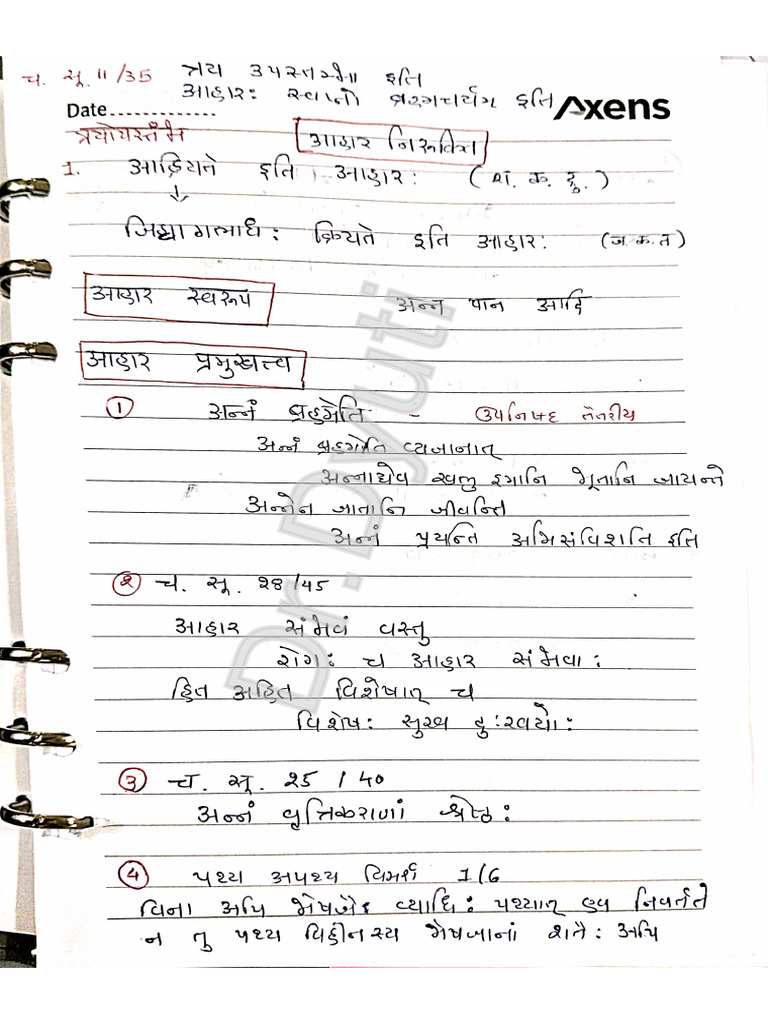 च. सू. 11/35 त्रय उपस्तम्भा इति
आहारः स्वप्नो ब्रह्मचर्यम इति
Axens
Date
त्रयोयस्तंभ
आहार निरूक्ति
1. आह्रियते इति आहारः (श. क. द्रु.)
क्रियते इति आहारः (ज. क. त)
आहार स्वरूप अन्न पान आदि
आहार प्रमुखत्व
① अन्नं ब्रह्मेति - उपनिषद तैतरीय
अन्नं ब्रह्मेति व्यजानात्
अन्नाद्येव खलु इमानि भूतानि जायन्ते
अन्नेन जातानि जीवन्ति
अन्नं प्रयन्ति अभिसंविशति इति
② च. सू. 28/45
आहार संभवं वस्तु
रोगः च आहार संभवाः
हित अहित विशेषात् च
विशेषः सुख दुःखयोः
③ च. सू. 25 / 40
अन्नं वृत्तिकराणां श्रेष्ठः
④ पथ्य अपथ्य विमर्श 1/6
विना अपि भेषजैः व्याधिः पथ्यात् एव निवर्तते
न तु पथ्य विहीनस्य भेषजानां शतैः अपि
Dr. Dyuti